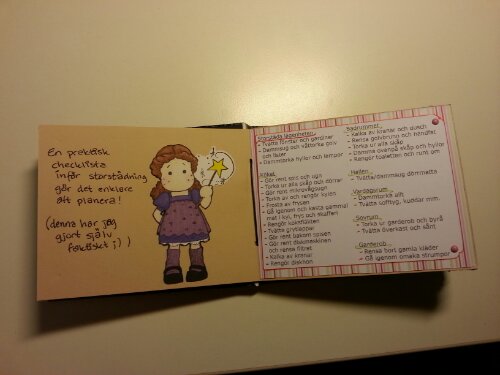 En praktisk
checklista
inför storstädning
gör det enklare
att planera!
(denna har jag
gjort själv
faktiskt ;) )
Storstäda lägenheten
- Tvätta fönster och gardiner
- Dammsug och våttorka golv
och lister
- Dammtorka hyllor och lampor
Köket
- Gör rent sots och ugn
- Torka ur alla skåp och dörrar
- Gör rent mikrovågsugn
- Torka av och rengör kylen
- Frosta av frysen
- Gå igenom och kasta gammal
mat i kyl, frys och skafferi
- Rengör köksfläkten
- Tvätta grytlappar
- Gör rent bakom spisen
- Gör rent diskmaskinen
och rensa filtret
- Kalka av kranar
- Rengör diskhon
Badrummet
- Kalka av kranar och dusch
- Rensa golvbrunn och handfat
- Torka ur alla skåp
- Damma ovanpå skåp och hyllor
- Rengör toaletten och runt om
Hallen
- Tvätta/dammsug dörrmatta
Vardagsrum
- Dammtorka allt
- Tvätta soffтyg, kuddar mm.
Sovrum
- Torka ur garderob och byrå
- Tvätta överkast och sånt
Garderob
- Rensa bort gamla kläder
- Gå igenom omaka strumpor